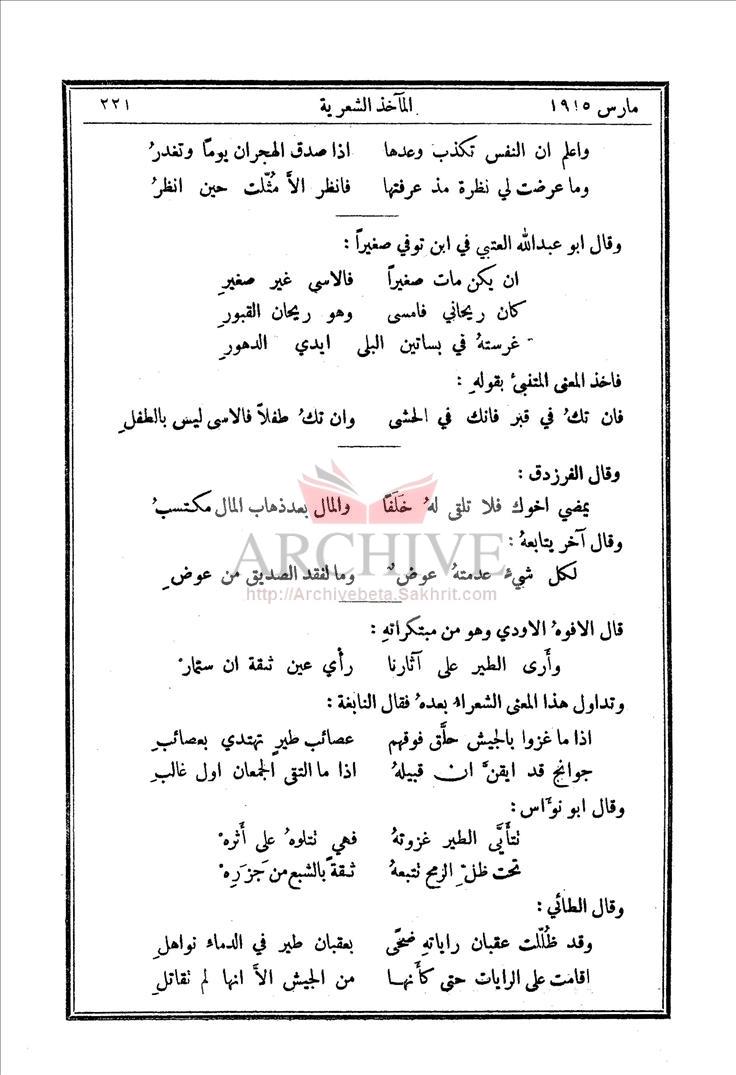 مارس ١٩١٥ المآخذ الشعرية ٢٢١
واعلم ان النفس تكذب وعدها اذا صدق الهجران يوماً وتغدرُ
وما عرضت لي نظرة مذ عرفتها فانظر الاَّ مُثّلت حين انظرُ
وقال ابو عبدالله العتبي في ابن توفي صغيراً :
ان يكن مات صغيراً فالاسى غير صغيرِ
كان ريحاني فامسى وهو ريحان القبورِ
غرستهُ في بساتين البلى ايدي الدهورِ
فاخذ المعنى المتنبئ بقولهِ :
فان تكُ في قبر فانك في الحشى وان تكُ طفلاً فالاسى ليس بالطفلِ
وقال الفرزدق :
يمضي اخوك فلا تلقى لهُ خَلَفًا والمال بعد ذهاب المال مكتسبُ
وقال آخر يتابعهُ :
لكل شيءٍ عدمتهُ عوضٌ وما لفقد الصديق من عوضِ
ARCHIVE
http://Archivebeta.Sakhrit.com
قال الافوهُ الاودي وهو من مبتكراتهِ :
وأَرى الطير على آثارنا رأْي عين ثقة ان ستمارْ
وتداول هذا المعنى الشعراء بعدهُ فقال النابغة :
اذا ما غزوا بالجيش حلَّق فوقهم عصائب طيرٍ تهتدي بعصائبِ
جوانح قد ايقنَّ ان قبيلهُ اذا ما التقى الجمعان اول غالبِ
وقال ابو نوَّاس :
تتأَيَّى الطير غزوتهُ فهي تتلوهُ على أَثرهْ
تحت ظلّ الرمح تتبعهُ ثقةً بالشبع من جَزَرِهْ
وقال الطائي :
وقد ظُلّلت عقبان راياتهِ ضحًى بعقبان طير في الدماء نواهلِ
اقامت على الرايات حتى كأَنها من الجيش الاَّ انها لم تقاتلِ